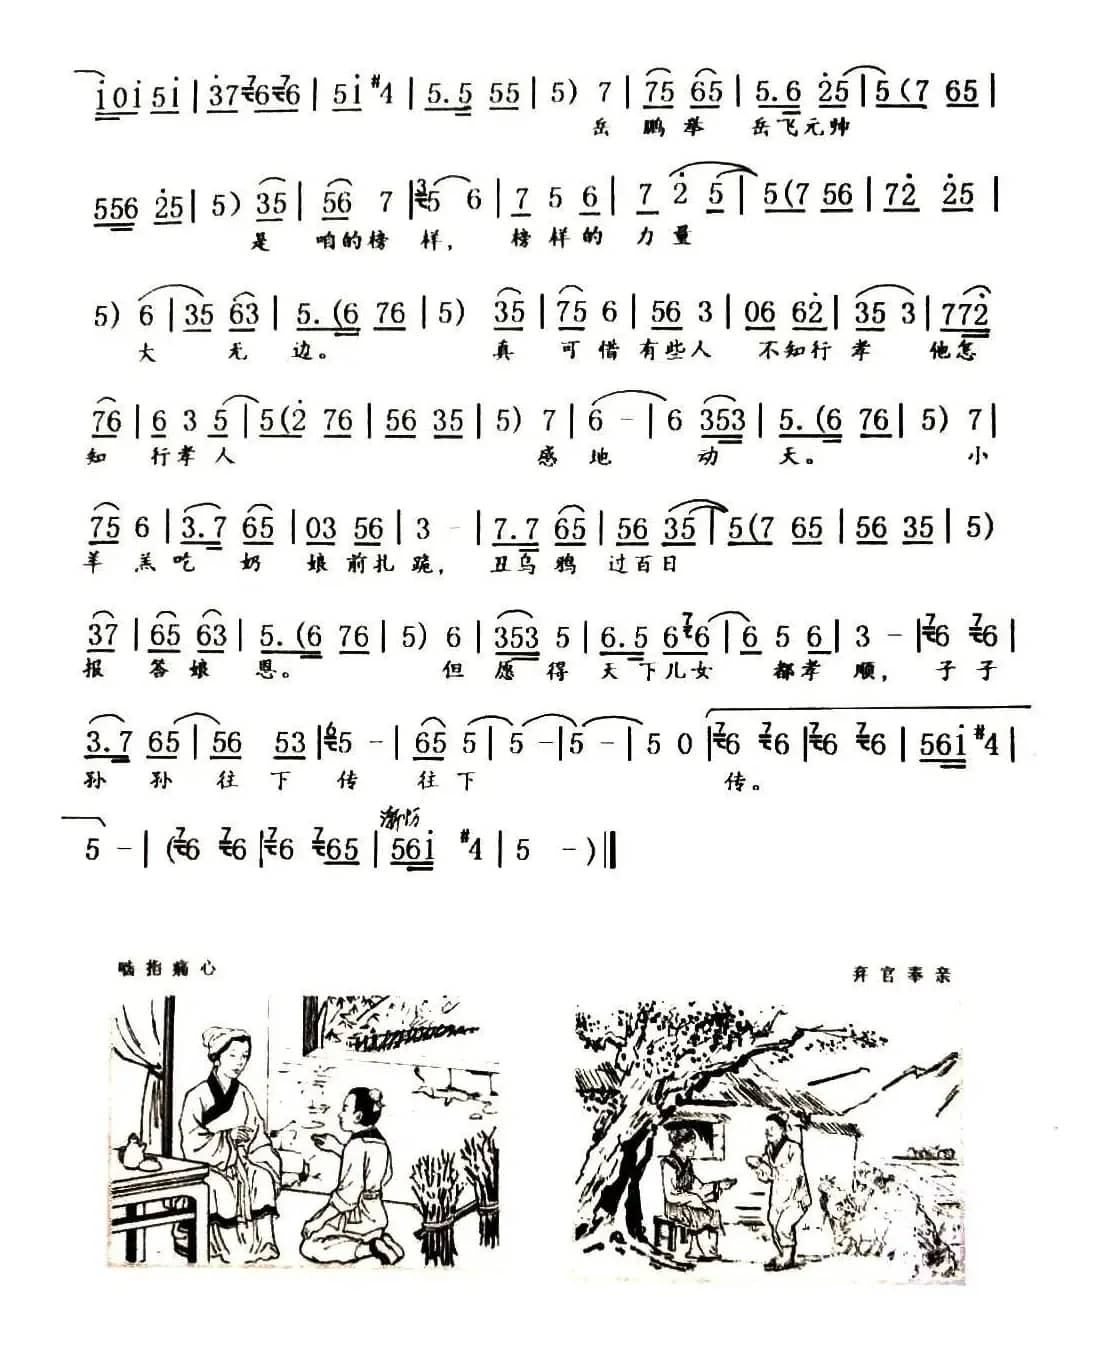 i0i 5i | 37 ⁷6⁷6 | 5i #4 | 5.5 55 | 5) 7 | 75 65 | 5.6 25 | 5(7 65 |
岳 鹏 举 岳飞元帅
556 25 | 5) 35 | 56 7 | ³5 6 | 7 5 6 | 7 2 5 | 5(7 56 | 72 25 |
是 咱的榜 样， 榜样的 力量
5) 6 | 35 63 | 5.(6 76 | 5) 35 | 75 6 | 56 3 | 06 62 | 35 3 | 772
大 无 边。 真 可惜 有些人 不知行 孝 他怎
76 | 6 3 5 | 5(2 76 | 56 35 | 5) 7 | 6 - | 6 353 | 5.(6 76 | 5) 7 |
知 行孝人 感 地 动 天。 小
75 6 | 3.7 65 | 03 56 | 3 - | 7.7 65 | 56 35 | 5(7 65 | 56 35 | 5)
羊 羔吃 奶 娘前扎跪， 丑乌鸦 过百日
37 | 65 63 | 5.(6 76 | 5) 6 | 353 5 | 6.5 6⁷6 | 6 5 6 | 3 - | ⁷6 ⁷6 |
报 答娘 恩。 但 愿 得 天下儿女 都孝 顺， 子子
3.7 65 | 56 53 | ⁶5 - | 65 5 | 5 - | 5 - | 5 0 | ⁷6 ⁷6 | ⁷6 ⁷6 | 56i #4 |
孙 孙 往 下 传 往下 传。
渐慢
5 - | (⁷6 ⁷6 | ⁷6 ⁷65 | 56i #4 | 5 - ) ||
啮指痛心
弃官奉亲